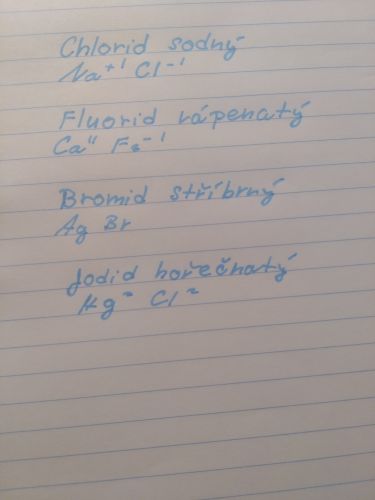 Chlorid sodný
Na⁺¹ Cl⁻¹
Fluorid vápenatý
Ca" F₂⁻¹
Bromid stříbrný
Ag Br
Jodid hořečnatý
Hg² Cl²